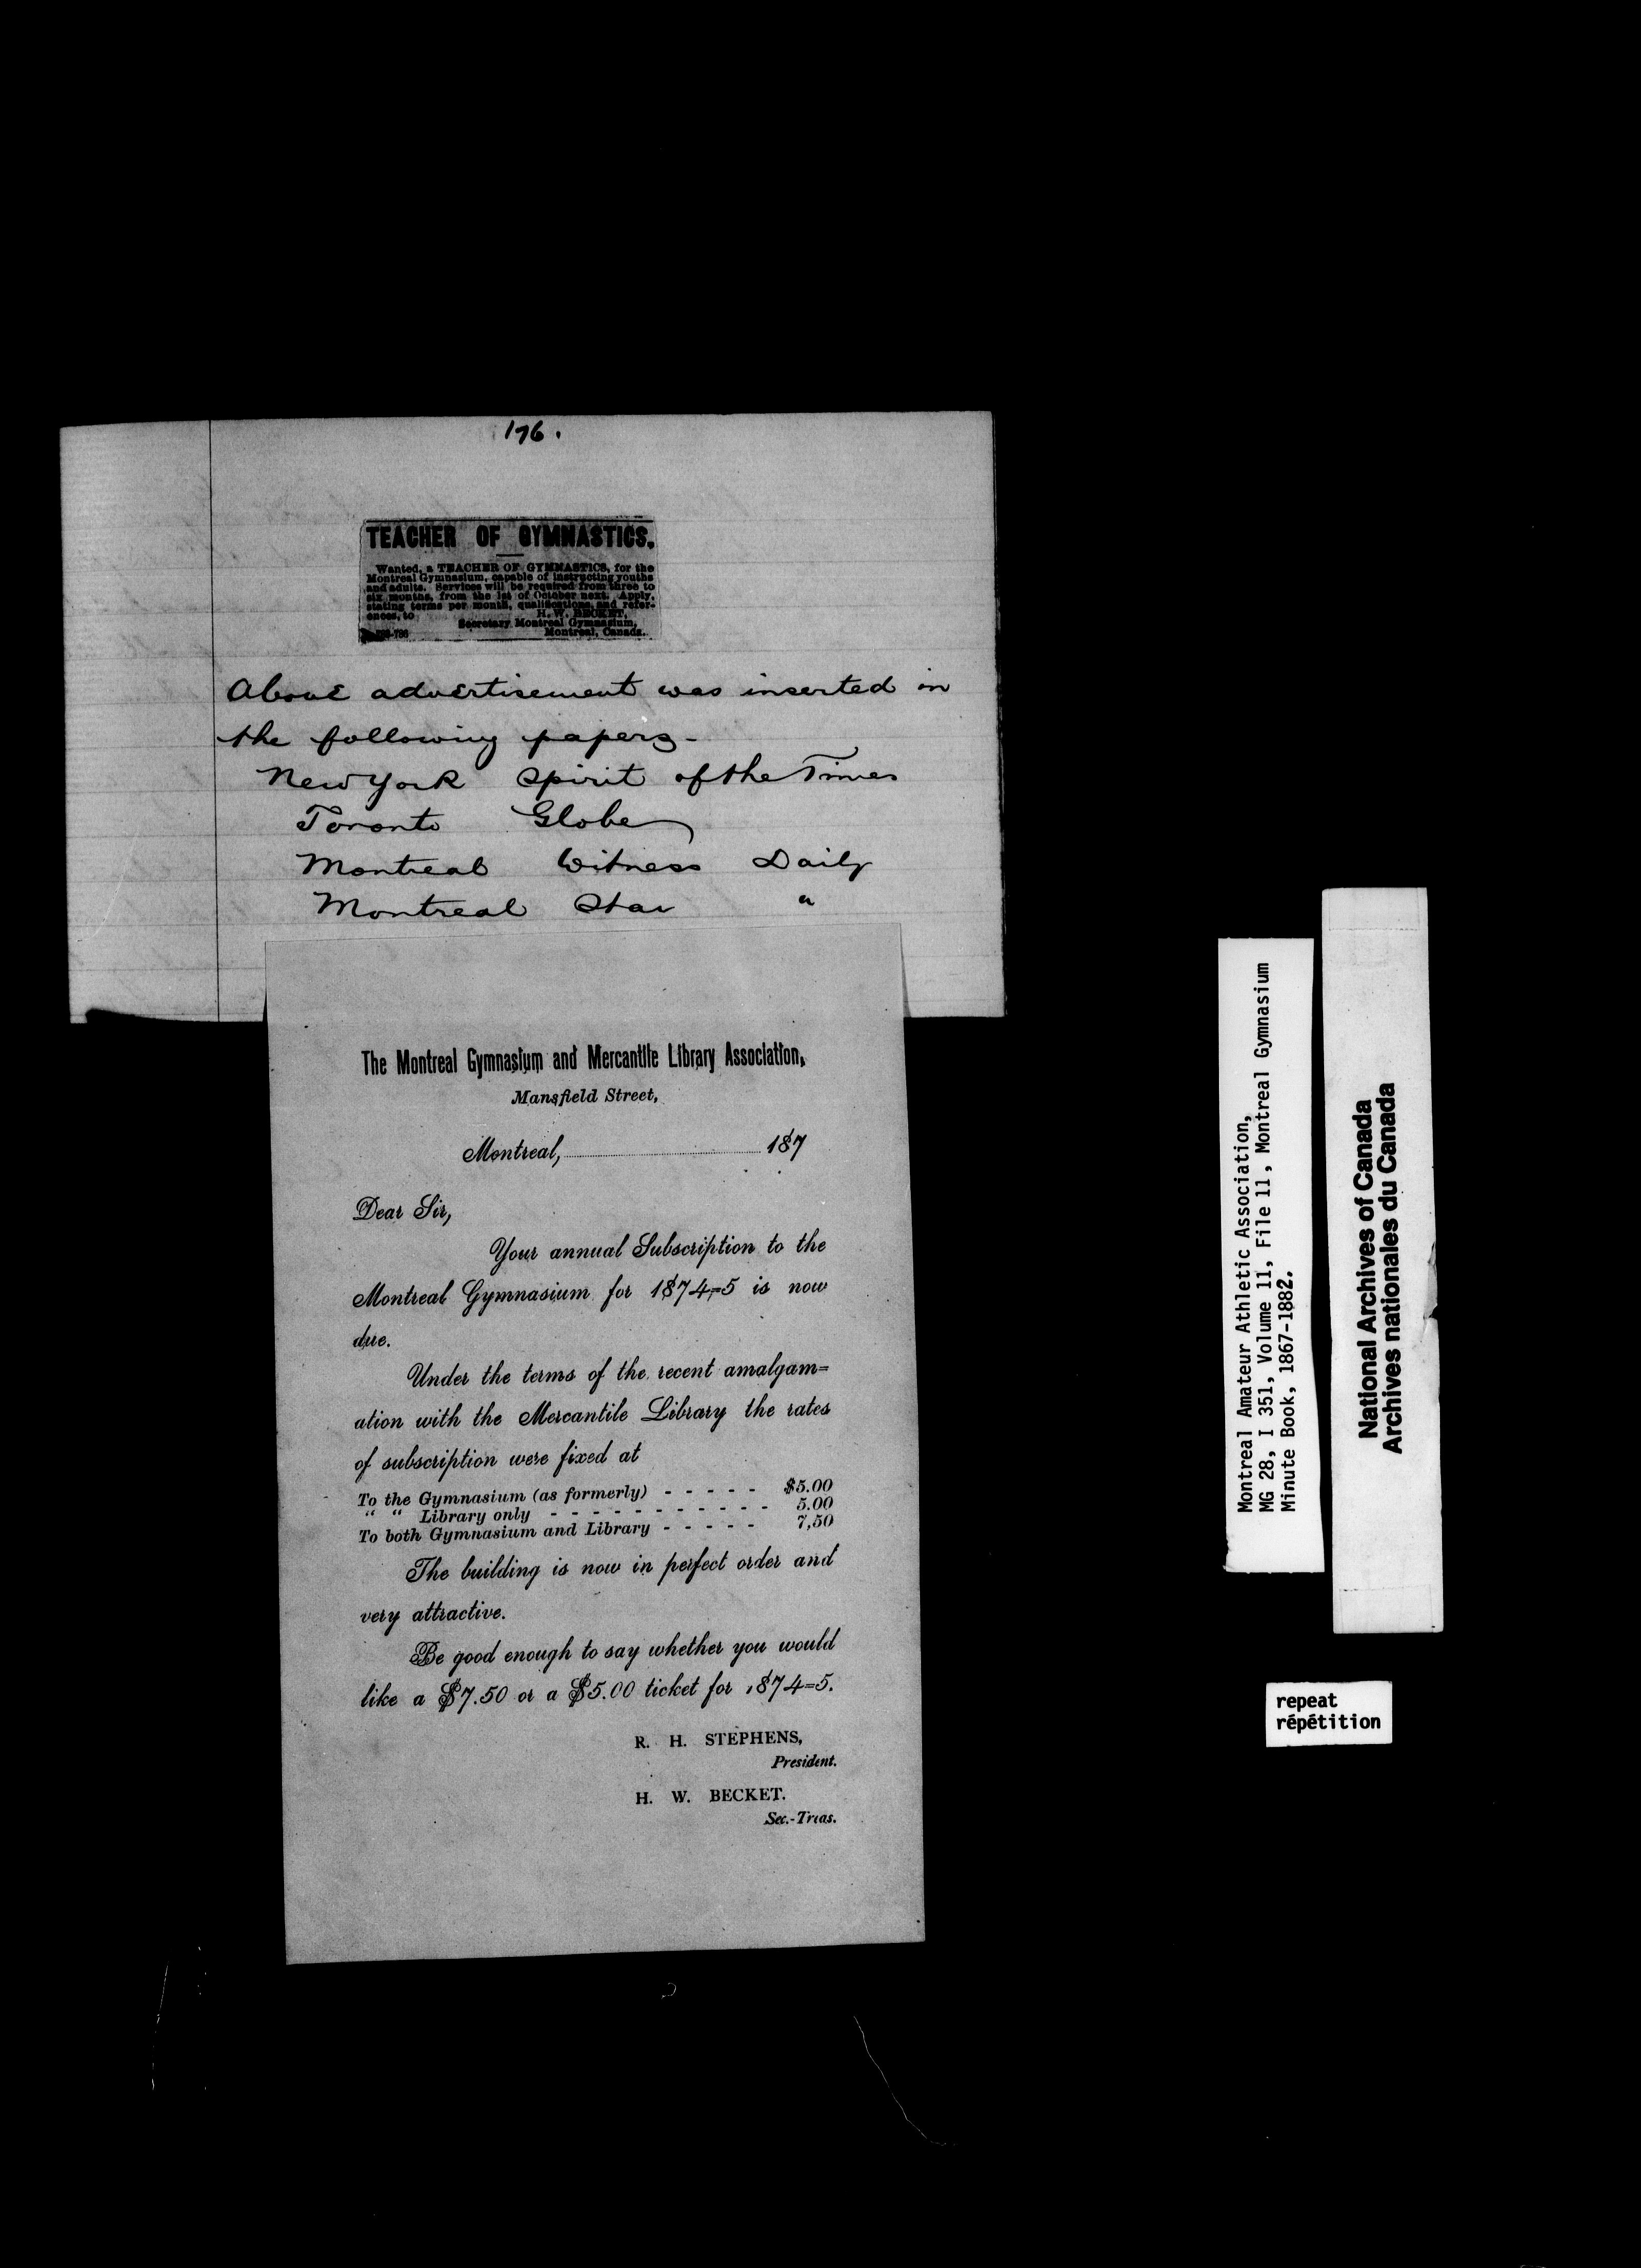 176.
TEACHER OF GYMNASTICS.
Wanted, a TEACHER OF GYMNASTICS, for the
Montreal Gymnasium, capable of instructing youths
and adults. Services will be required from three to
six months, from the 1st of October next. Apply,
stating terms per month, qualifications, and refer-
ences, to H. W. BECKET,
Secretary Montreal Gymnasium,
Montreal, Canada.
Above advertisement was inserted in
the following papers -
New York Spirit of the Times
Toronto Globe
Montreal Witness Daily
Montreal Star "
The Montreal Gymnasium and Mercantile Library Association,
Mansfield Street,
Montreal, 187
Dear Sir,
Your annual Subscription to the
Montreal Gymnasium for 1874=5 is now
due.
Under the terms of the recent amalgam=
ation with the Mercantile Library the rates
of subscription were fixed at
To the Gymnasium (as formerly) - - - - - $5.00
" " Library only - - - - - - - - - - - 5.00
To both Gymnasium and Library - - - - - 7,50
The building is now in perfect order and
very attractive.
Be good enough to say whether you would
like a $7.50 or a $5.00 ticket for 1874=5.
R. H. STEPHENS,
President.
H. W. BECKET.
Sec.-Treas.
Montreal Amateur Athletic Association,
MG 28, I 351, Volume 11, File 11, Montreal Gymnasium
Minute Book, 1867-1882.
National Archives of Canada
Archives nationales du Canada
repeat
répétition